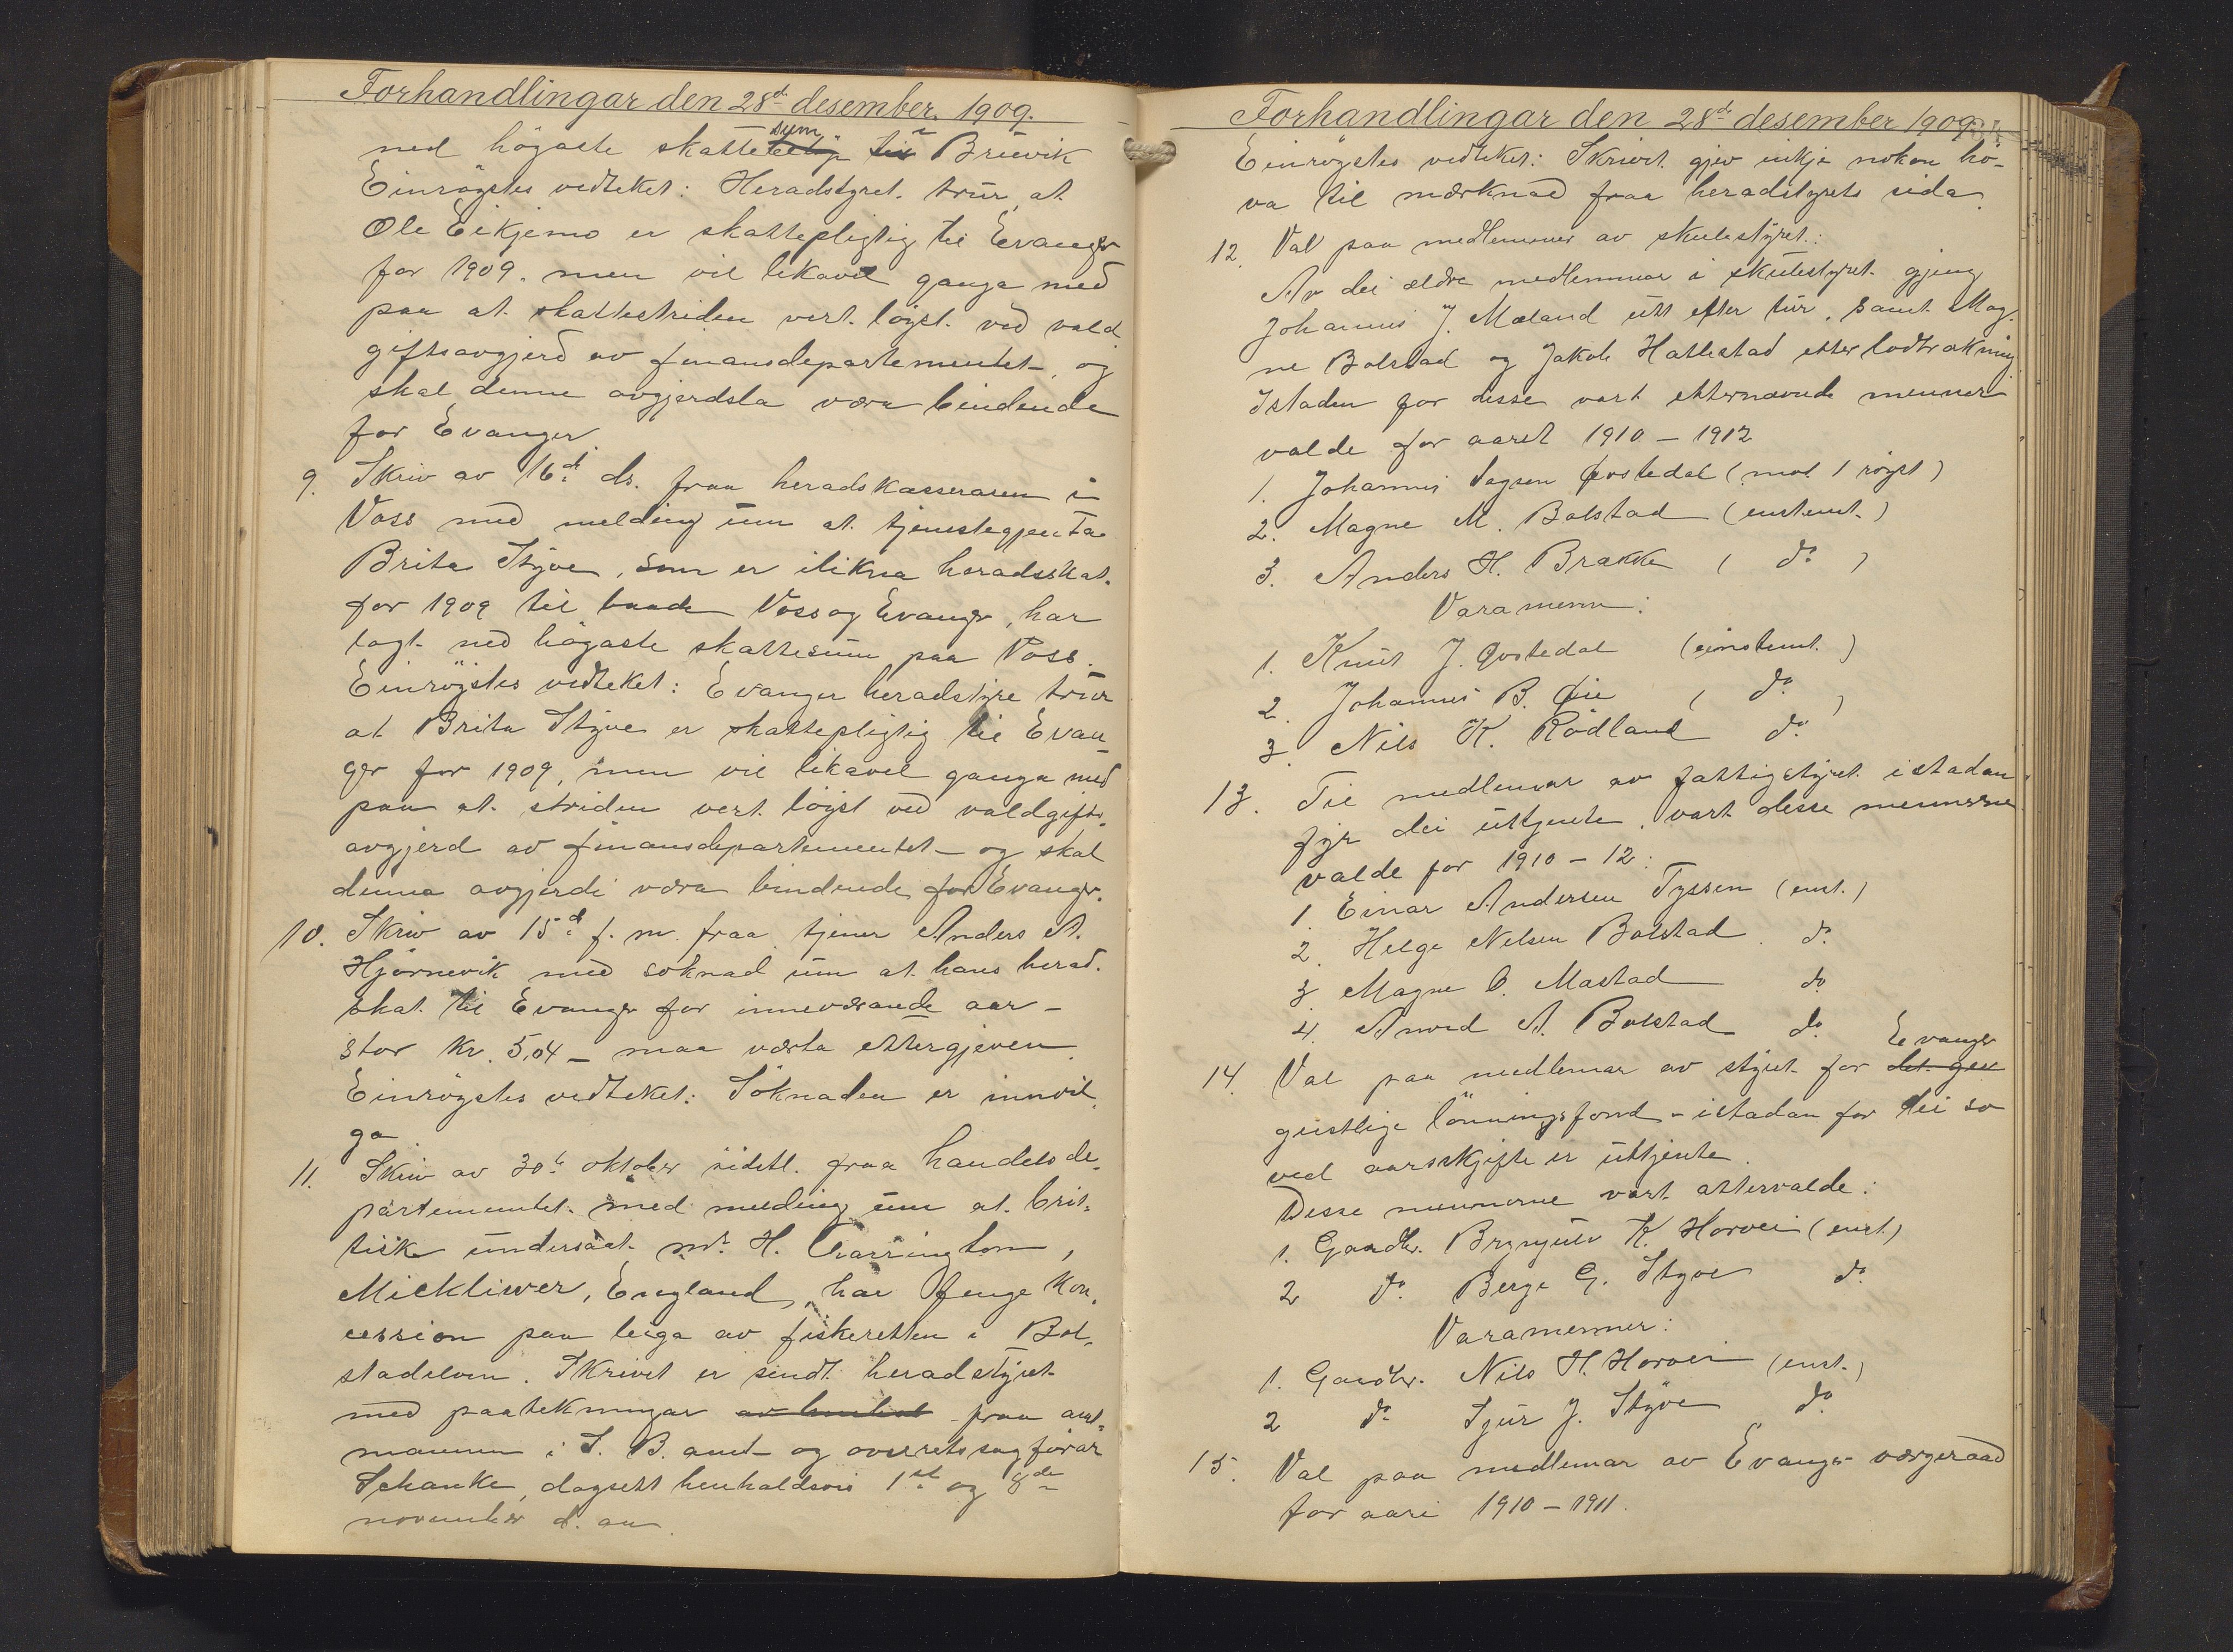 Forhandlingar den 28de desember. 1909.
med högaste skattesum i Bruvik
Einrögstes vedteket: Heradstyret trur, at
Ole Eikjemo er skattepligtig til Evanger
for 1909. men vil likavel ganga med
paa at skattestriden vert löyst ved vald
giftsavgjerd av finansdepartementet, og
skal denne avgjerdsla væra bindende
for Evanger.
9. Skriv av 16de ds. fraa heradskasseraren i
Voss med melding um at tjenestegjenta
Brita Styve, som er ilikna heradsskat
for 1909 til baade Voss og Evanger, har
lagt ned högaste skattesum paa Voss.
Einrögstes vedteket: Evanger heradstyre trur
at Brita Styve er skattepligtig til Evan-
ger for 1909, men vil likavel ganga med
paa at striden vert löyst ved valdgifts-
avgjerd av finansdepartementet - og skal
denna avgjerdi væra bindende for Evanger.
10. Skriv av 15de f. m. fraa tjener Anders A.
Hjörnevik med soknad um at hans herad-
skat til Evanger for inneværande aar -
stor kr. 5,04 - maa værta ettergjeven.
Einrögstes vedteket: Söknaden er innvil-
ga
11. Skriv av 30te oktober sidstl. fraa handelsde-
partementet med melding um at brit-
tisk undersaat mr. H. Charrington,
Mickliver, England, har fenge kon-
cession paa leiga av fiskeretten i Bol-
stadelven. Skrivet er sendt heradstyret
med paatekningar fraa amt-
mannen i S. B. amt og overretssagförar
Schanke, dagsett henholdsvis 1ste og 8de
november d. aa.
Forhandlingar den 28de desember 1909.
Einrögstes vedteket: Skrivet gjev inkje nokon hö-
va til mærknad fraa heradstyrets sida.
12. Val paa medlemmer av skulestyret:
Av dei ældre medlemmar i skulestyret gjeng
Johannes J. Mæland utt efter tur, samt Mag-
ne Bolstad og Jakob Hallestad etter lodtrækning
Istaden for desse vart etternævnde menner
valde for aaret 1910 - 1912
1. Johannes Sagsen Qvstedal (mot 1 röyst)
2. Magne M. Bolstad (enstemt.)
3. Anders H. Brakke ( do )
Varamenn:
1. Knut J. Qvstedal (einstemt.)
2. Johannes B. Öie ( do )
3. Nils K. Rödland do
13. Til medlemar av fattigstyret istadan
fyr dei uttjente, vart desse mennerne
valde for 1910 - 12:
1. Einar Andersen Tyssen (enst.)
2. Helge Nelsen Bolstad do
3. Magne O. Mastad do
4. Amund A. Bolstad do
14. Val paa medlemar av styret for Evanger
geistlige lönningsfond - istadan for dei so
ved aarsskifte er uttjente.
Desse mennerne vart attervalde:
1. Gaardbr. Brynjulv K. Horvei (enst.)
2 do Berge G. Styve do
Varamenner:
1. Gaardbr. Nils H. Horvei (enst.)
2 do Sjur J. Styve do
15. Val paa medlemar av Evanger værgeraad
for aari 1910 - 1911.